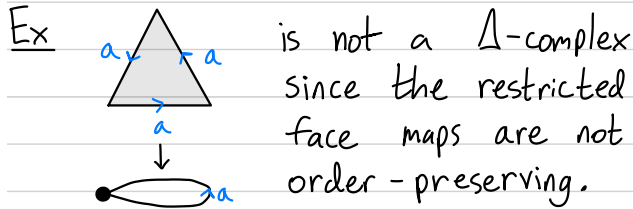 Ex
is not a Δ-complex
a
a
since the restricted
a
face maps are not
a
order-preserving.